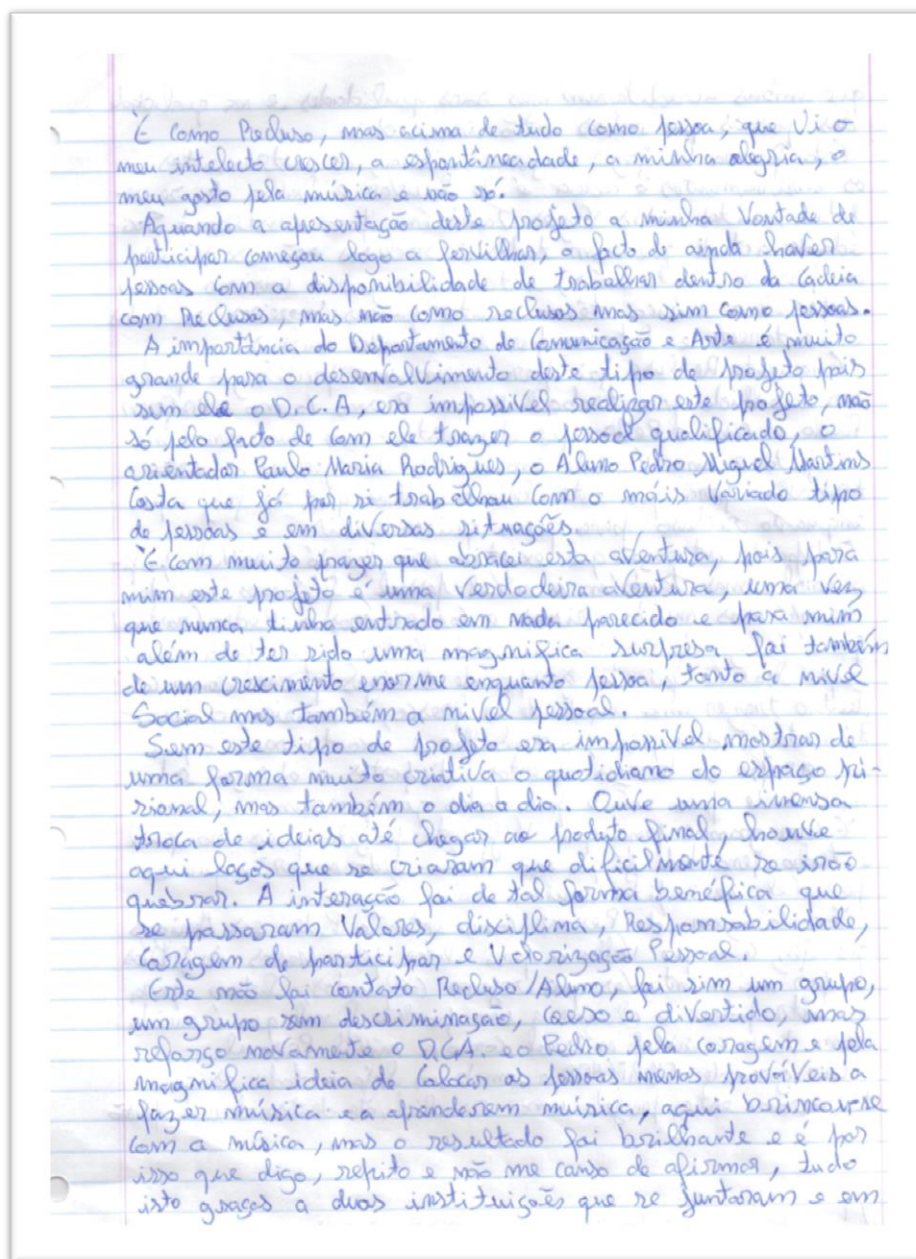 È como Recluso, mas acima de tudo como pessoa, que vi o
meu intelecto crescer, a espontâneadade, a minha alegria, o
meu gosto pela música e não só.
Aquando a apresentação deste projeto a minha Vontade de
participar começou logo a fervilhar, o facto de ainda haver
pessoas com a disponibilidade de trabalhar dentro da Cadeia
com Reclusos, mas não como reclusos mas sim como pessoas.
A importância do Departamento de Comunicação e Arte é muito
grande para o desenvolvimento deste tipo de projeto pois
sem ele o D.C.A, era impossivel realizar este projeto, não
só pelo facto de com ele trazer o pessoal qualificado, o
orientador Paulo Maria Rodrigues, o Aluno Pedro Miguel Martins
Costa que já por si trabalhou com o mais variado tipo
de pessoas e em diversas situações.
È com muito prazer que abracei esta aventura, pois para
mim este projeto é uma Verdadeira aventura, uma vez
que nunca tinha entrado em nada parecido e para mim
além de ter sido uma magnifica surpresa foi também
de um crescimento enorme enquanto pessoa, tanto a nivel
Social mas também a nivel pessoal.
Sem este tipo de projeto era impossivel mostrar de
uma forma muito criativa o quotidiano do espaço pri-
sional, mas também o dia a dia. Ouve uma imensa
troca de ideias até chegar ao produto final, houve
aqui laços que se criaram que dificilmente se irão
quebrar. A interação foi de tal forma benéfica que
se passaram Valores, disciplina, Responsabilidade,
Coragem de participar e Valorização Pessoal.
Este não foi contato Recluso/Aluno, foi sim um grupo,
um grupo sem descriminação, coeso e divertido, mas
reforço novamente o D.C.A. e o Pedro pela coragem e pela
magnifica ideia de Colocar as pessoas menos prováveis a
fazer música e a aprenderem música, aqui brincou-se
com a música, mas o resultado foi brilhante e é por
isso que digo, repito e não me canso de afirmar, tudo
isto graças a duas instituições que se juntaram e em